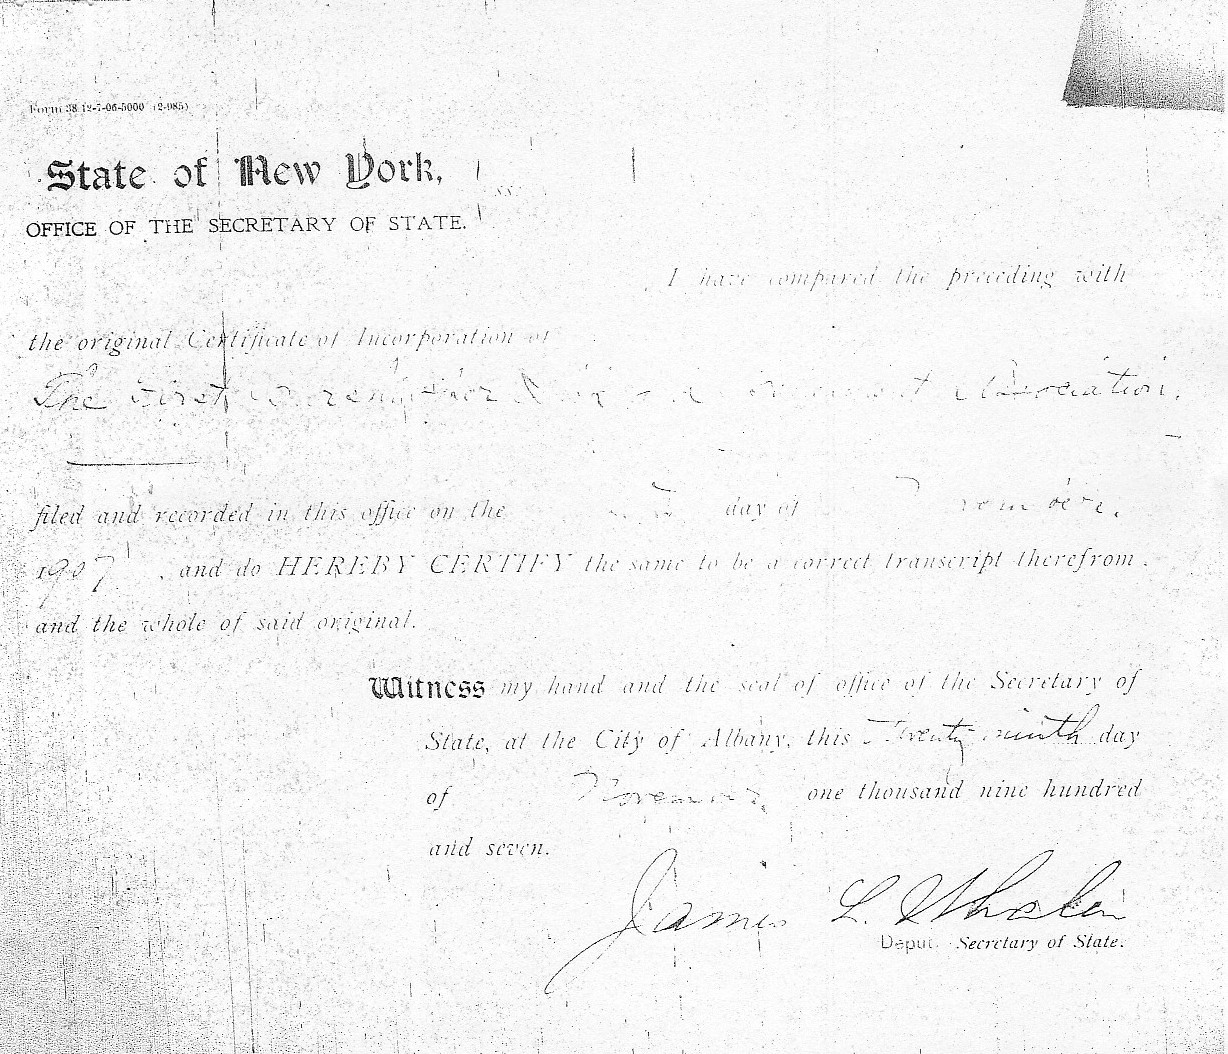 Form 38 12-7-06-5000 (2-985)
State of New York,
ss.
OFFICE OF THE SECRETARY OF STATE.
I have compared the preceding with
the original Certificate of Incorporation of
The First Association.
filed and recorded in this office on the day of
1907, and do HEREBY CERTIFY the same to be a correct transcript therefrom
and the whole of said original.
Witness my hand and the seal of office of the Secretary of
State, at the City of Albany, this Twenty ninth day
of November, one thousand nine hundred
and seven.
James L. Whalen
Deputy Secretary of State.